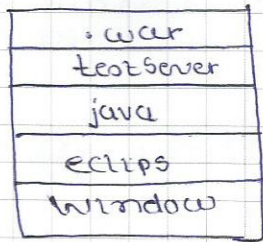 .war
testServer
java
eclips
window